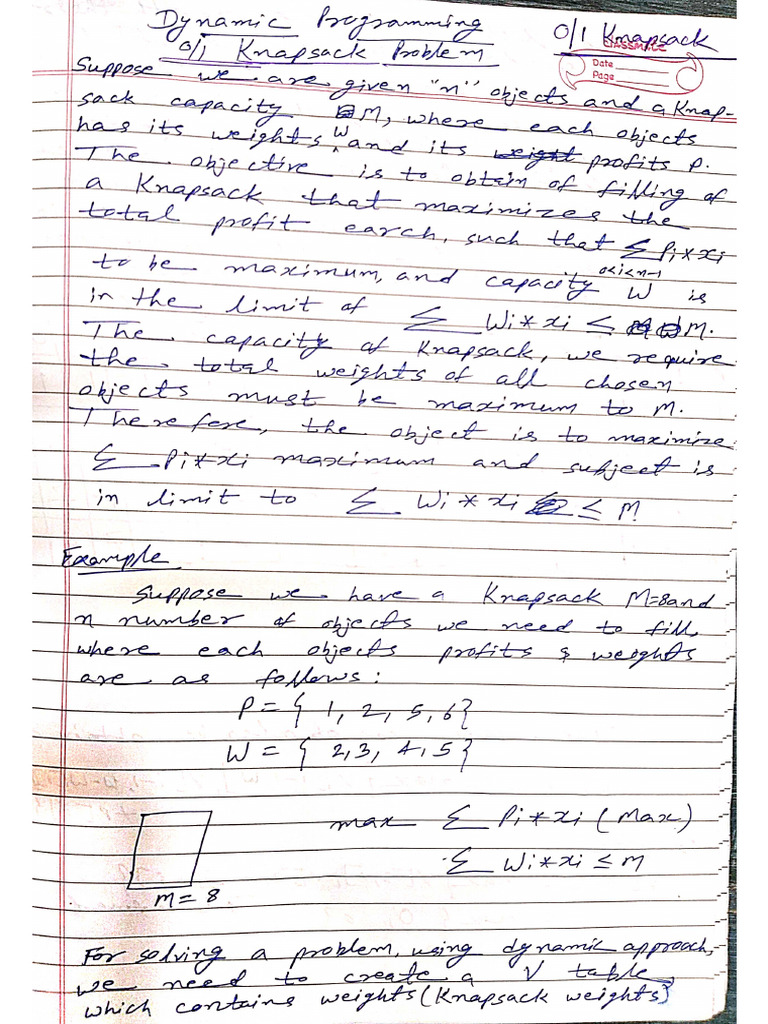 Dynamic Programming
0/1 Knapsack
0/1 Knapsack Problem
classmate
Date
Page
Suppose we are given "n" objects and a Knap-
sack capacity M, where each objects
has its weights W and its weight profits P.
The objective is to obtain of filling of
a Knapsack that maximizes the
total profit earch, such that ∑ Pi*xi
0<i<n-1
to be maximum, and capacity W is
in the limit of ∑ Wi * xi ≤ M.
The capacity of Knapsack, we require
the total weights of all chosen
objects must be maximum to M.
Therefore, the object is to maximize
∑ Pi*xi maximum and subject is
in limit to ∑ Wi * xi ≤ M
Example
Suppose we have a Knapsack M=8 and
n number of objects we need to fill,
where each objects profits & weights
are as follows:
P = { 1, 2, 5, 6}
W = { 2, 3, 4, 5}
max ∑ Pi*xi (Max)
∑ Wi*xi ≤ M
M = 8
For solving a problem, using dynamic approach,
we need to create a V table,
which contains weights (Knapsack weights)